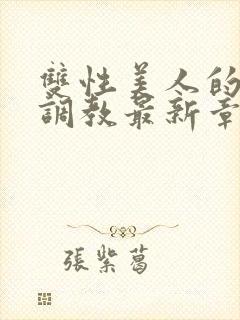 雙性美人的
調教最新章
張紫葛